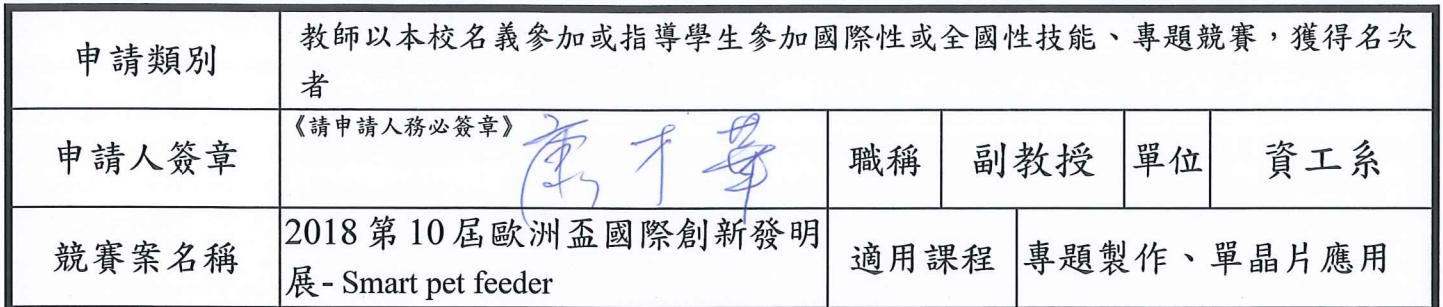 申請類別
教師以本校名義參加或指導學生參加國際性或全國性技能、專題競賽，獲得名次
者
申請人簽章
《請申請人務必簽章》
康才華
職稱
副教授
單位
資工系
競賽案名稱
2018 第 10 屆歐洲盃國際創新發明
展- Smart pet feeder
適用課程
專題製作、單晶片應用